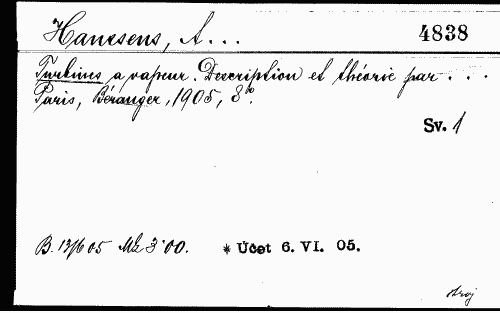 Hanssens, A...
4838
Turbines a vapeur. Description et théorie par . . .
Paris, Béranger, 1905, 8o.
Sv. 1
B. 13/6 05 Mk 3·00. * Účet 6. VI. 05.
stroj